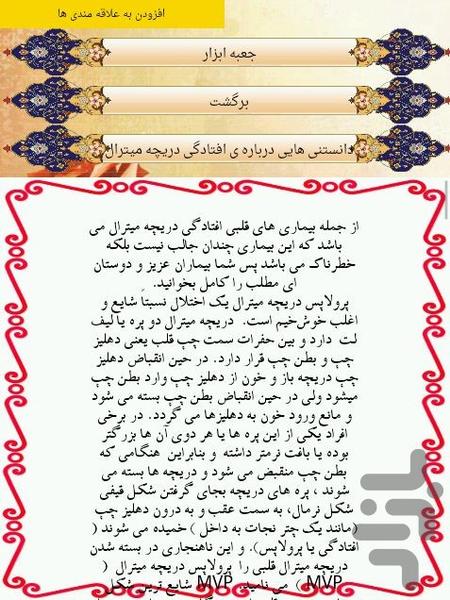 افزودن به علاقه مندی ها
جعبه ابزار
برگشت
دانستنی هایی درباره ی افتادگی دریچه میترال
از جمله بیماری های قلبی افتادگی دریچه میترال می
باشد که این بیماری چندان جالب نیست بلکه
خطرناک می باشد پس شما بیماران عزیز و دوستان
ای مطلب را کامل بخوانید.
پرولاپس دریچه میترال یک اختلال نسبتاً شایع و
اغلب خوش‌خیم است. دریچه میترال دو پره یا لیف
لت دارد و بین حفرات سمت چپ قلب یعنی دهلیز
چپ و بطن چپ قرار دارد. در حین انقباض دهلیز
چپ دریچه باز و خون از دهلیز چپ وارد بطن چپ
میشود ولی در حین انقباض بطن چپ بسته می شود
و مانع ورود خون به دهلیزها می گردد. در برخی
افراد یکی از این پره ها یا هر دوی آن ها بزرگتر
بوده یا بافت نرمتر داشته و بنابراین هنگامی که
بطن چپ منقبض می شود و دریچه ها بسته می
شوند ، پره های دریچه بجای گرفتن شکل قیفی
شکل نرمال، به سمت عقب و به درون دهلیز چپ
(مانند یک چتر نجات به داخل ) خمیده می شوند (
افتادگی یا پرولاپس). و این ناهنجاری در بسته شدن
دریچه میترال قلبی را پرولاپس دریچه میترال (
MVP ) می نامید. MVP شایع ترین شکل
بازار